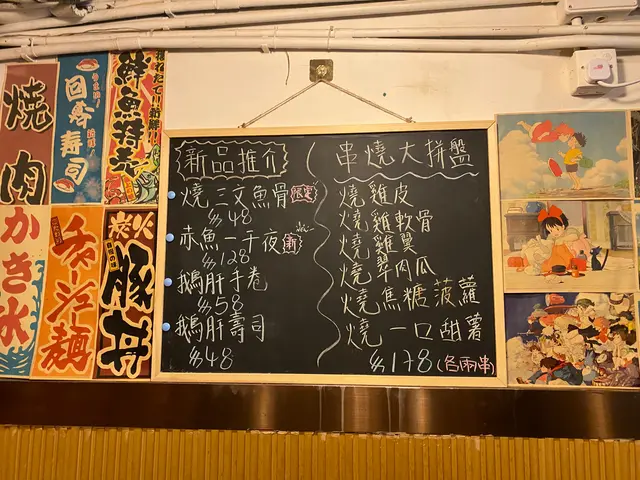 焼肉
うまい!
回転寿司
鮮魚
かき氷
チャーシュー麺
炭火
豚丼
新品推介
燒三文魚骨 限定
$48
赤魚一干夜 新
$128
鵝肝手卷
$58
鵝肝壽司
$48
串燒大拼盤
燒雞皮
燒雞軟骨
燒雞翼
燒翠肉瓜
燒焦糖菠蘿
燒一口甜薯
$178(各兩串)